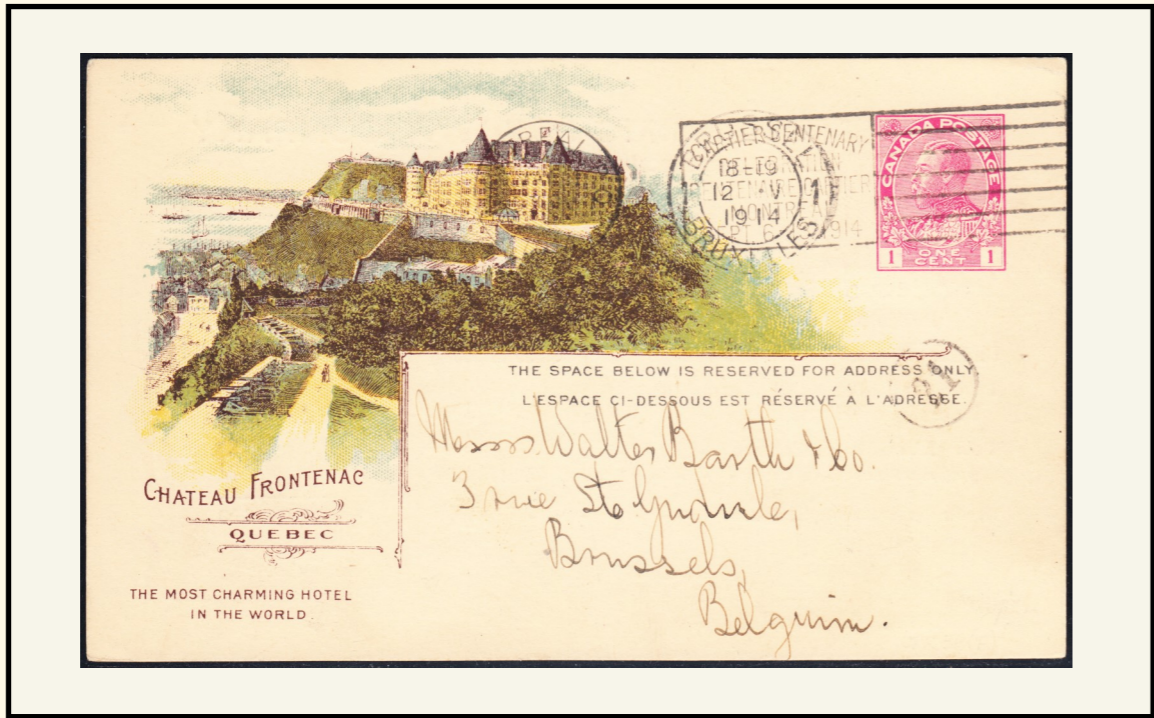 CARTIER CENTENARY
MONTREAL
18-19
12 V
1914
BRUXELLES
CANADA POSTAGE
1 ONE CENT 1
THE SPACE BELOW IS RESERVED FOR ADDRESS ONLY
L'ESPACE CI-DESSOUS EST RÉSERVÉ À L'ADRESSE.
21
Messrs. Walter Barth & Co.
3 rue Ste Gudule,
Brussels,
Belguim.
CHATEAU FRONTENAC
QUEBEC
THE MOST CHARMING HOTEL
IN THE WORLD.